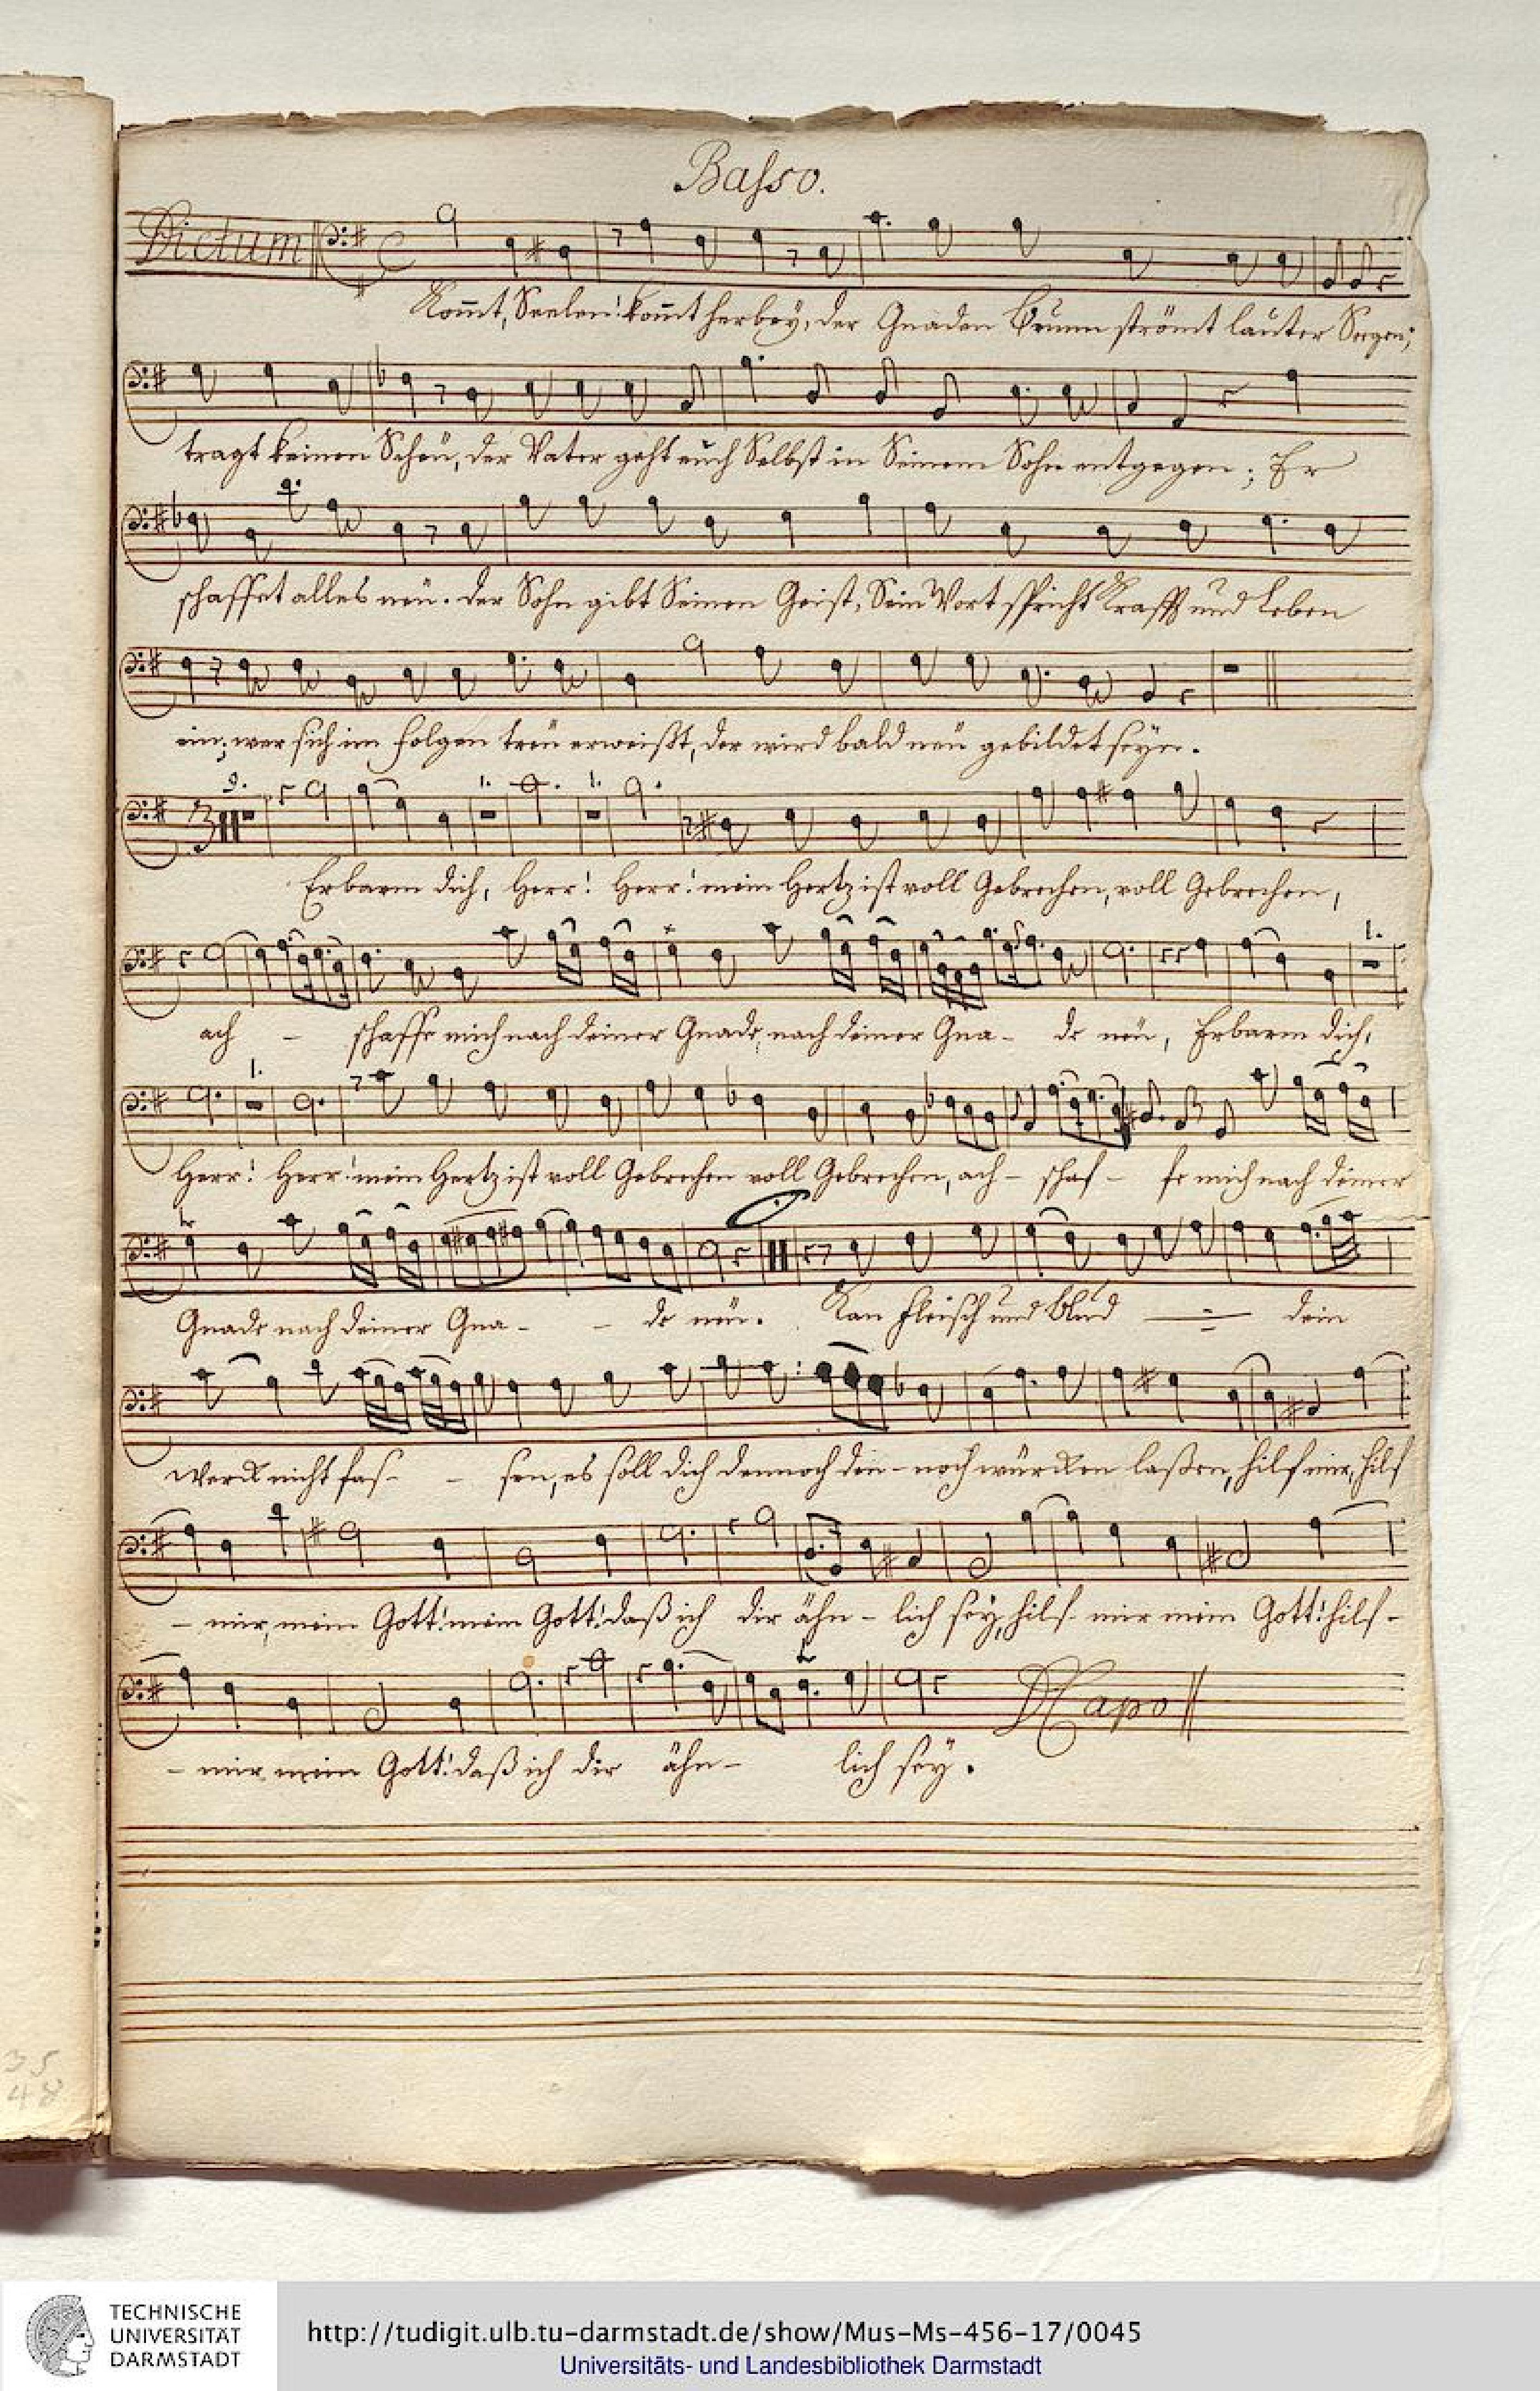 Basso.
Dictum
Kom̄t, Seelen! kom̄t herbeÿ, der Gnaden Brunn strömt lauter Seegen;
tragt keinen Scheü, der Vater geht euch Selbst in Seinem Sohn entgegen; Er
schaffet alles neü. der Sohn gibt Seinen Geist, Sein Wort spricht Krafft und Leben
ein; wer sich im folgen treü erweißt, der wird bald neü gebildet seyn.
3 9. 1. 1.
Erbarm dich, Herr! Herr! mein Hertz ist voll Gebrechen, voll Gebrechen,
1.
ach - schaffe mich nach deiner Gnade, nach deiner Gna- de neü, Erbarm dich,
1.
Herr! Herr! mein Hertz ist voll Gebrechen voll Gebrechen, ach - schaf - fe mich nach deiner
Gnade nach deiner Gna - - de neü. Kan Fleisch und Blud dein
Werck nicht fas - - sen, es soll dich dennoch den - noch würcken laßen, hilf mir, hilf
- mir, mein Gott! mein Gott! daß ich dir ähn - lich seÿ, hilf mir mein Gott! hilf -
DCapo
- mir mein Gott! daß ich dir ähn - lich seÿ.
35
48
TECHNISCHE
UNIVERSITÄT
DARMSTADT
http://tudigit.ulb.tu-darmstadt.de/show/Mus-Ms-456-17/0045
Universitäts- und Landesbibliothek Darmstadt